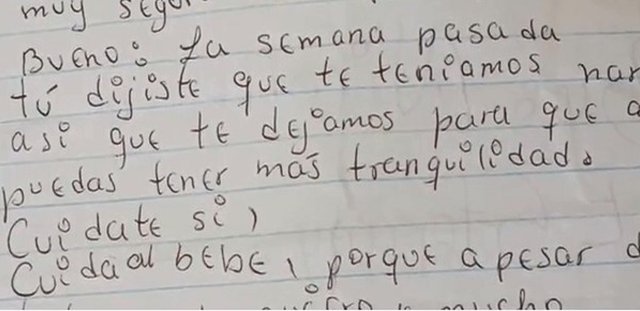 muy segur
Bueno: La semana pasada
tú dijiste que te teniamos har
asi que te dejamos para que a
puedas tener más tranquilidad.
Cuidate si,
Cuida al bebe, porque a pesar d
mucho